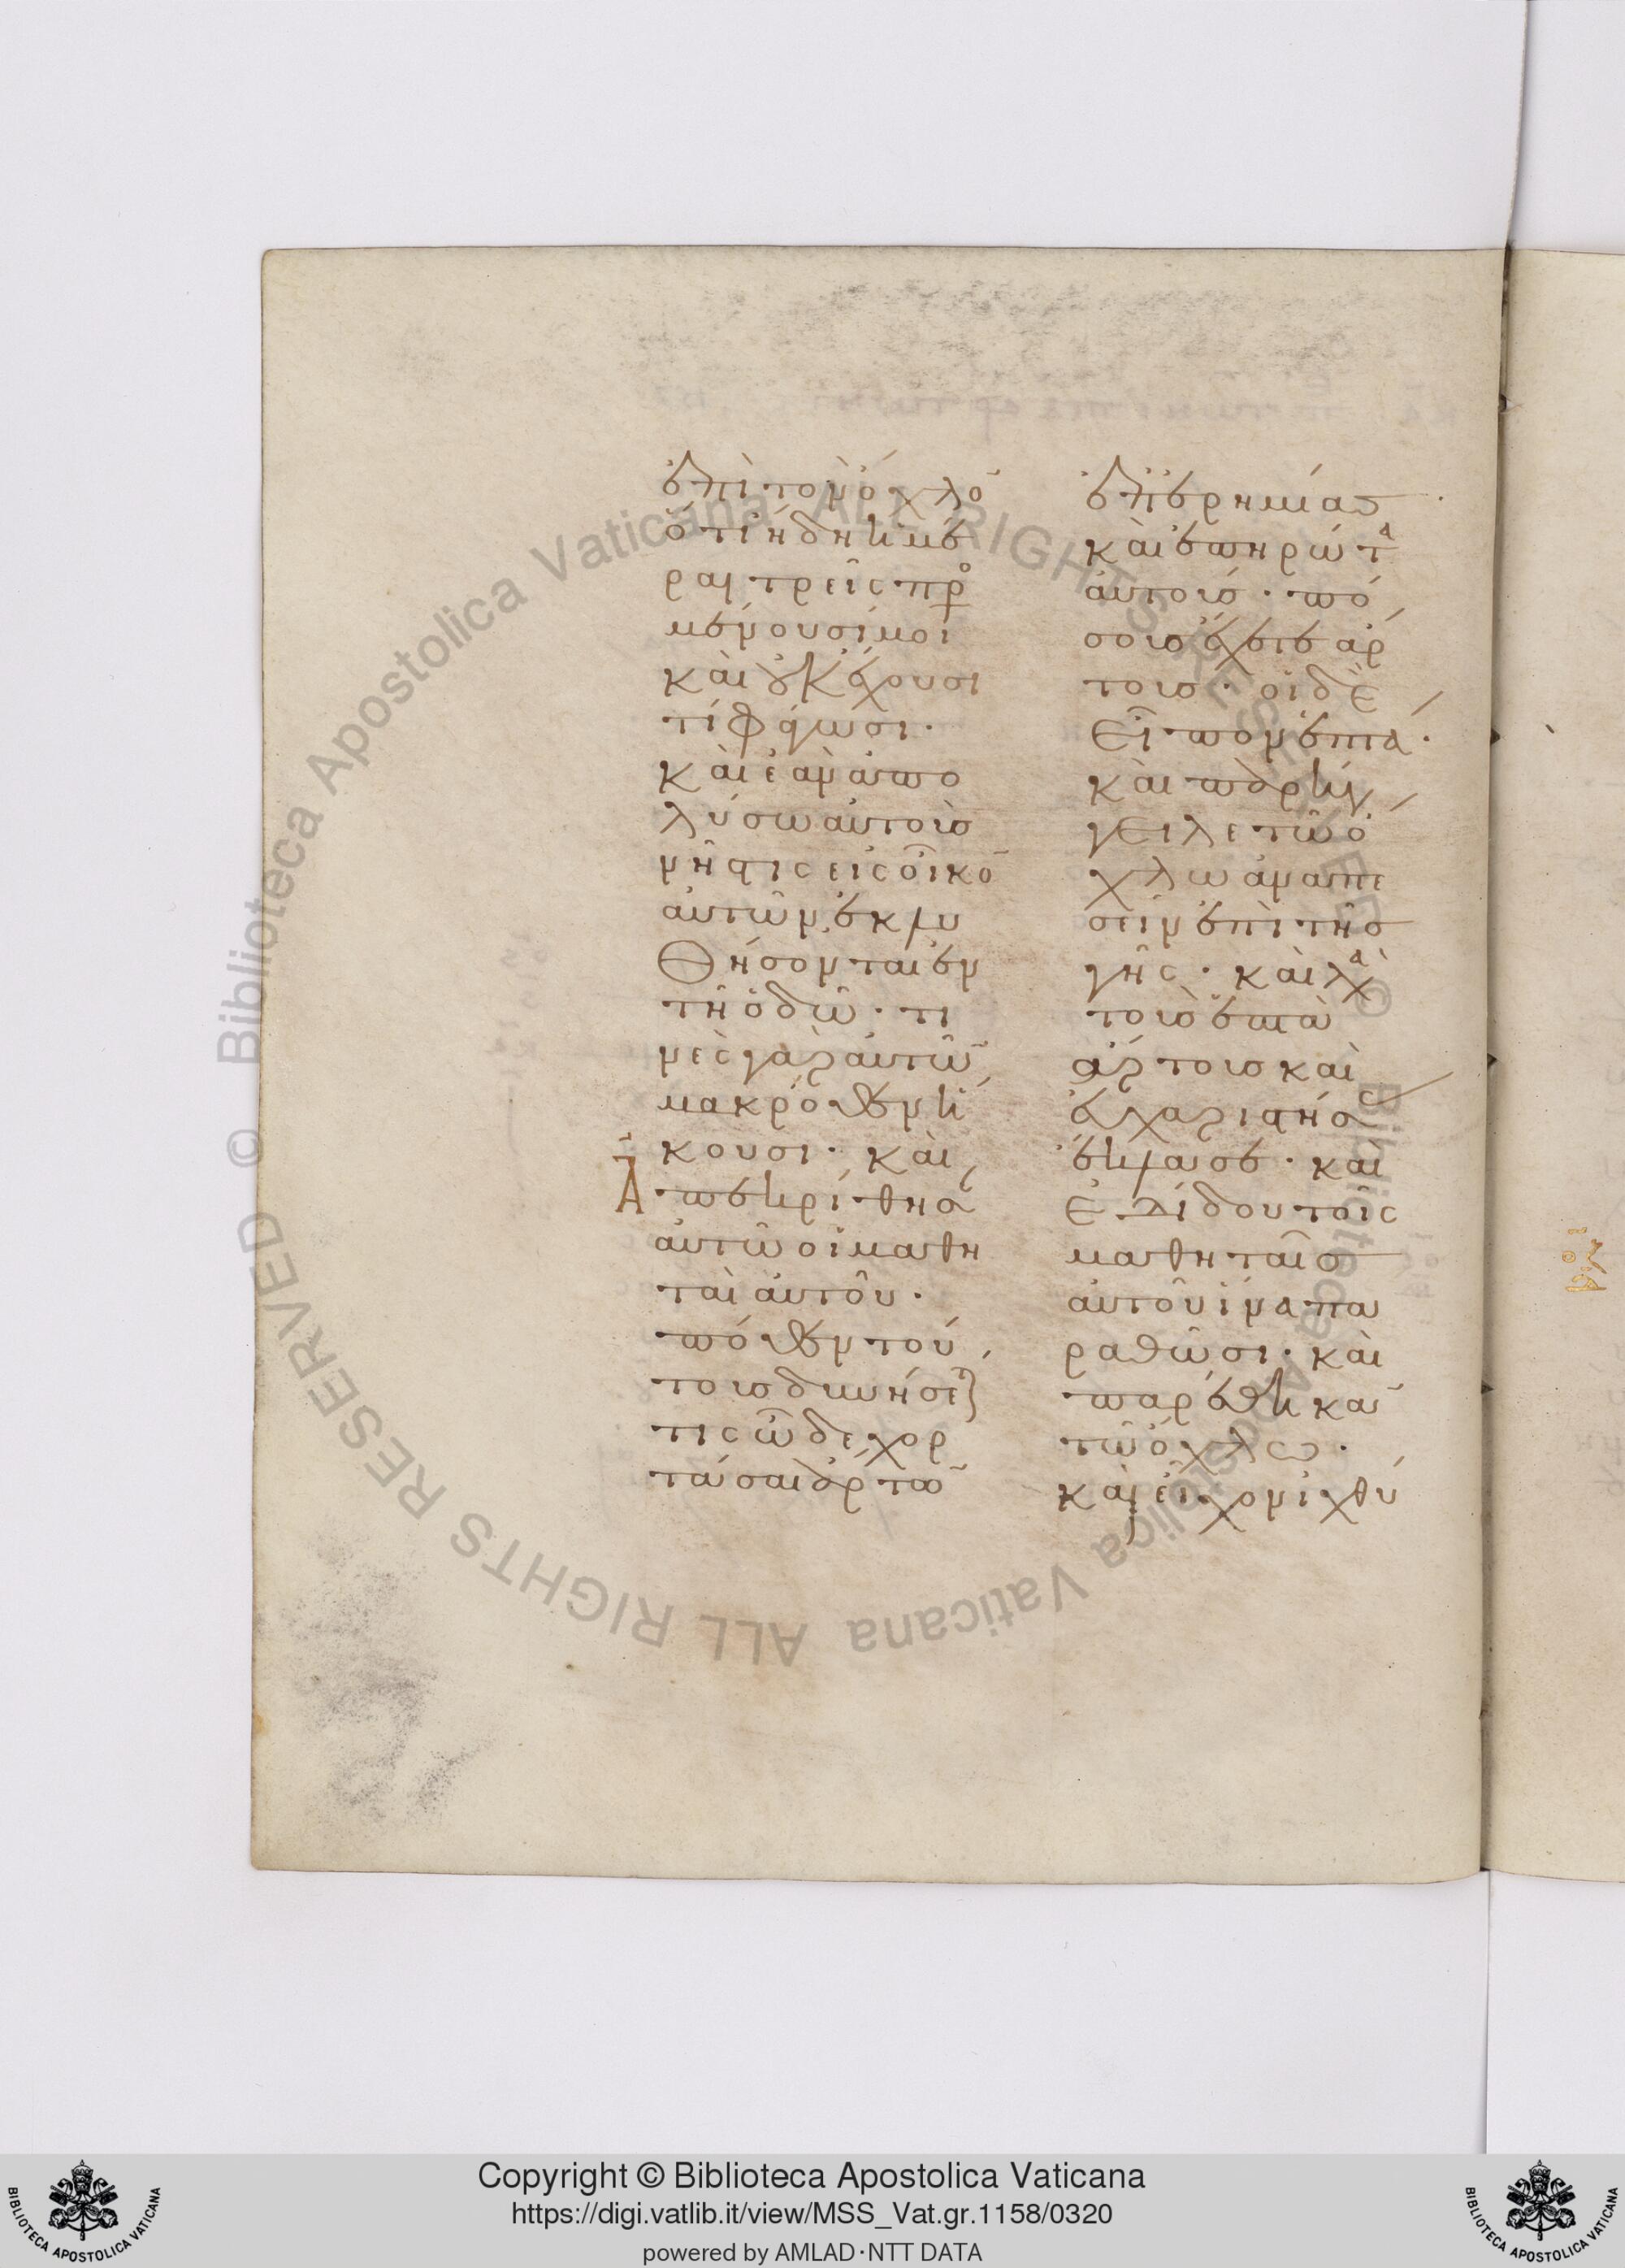 ἐπὶ τὸν ὄχλο̄
ὅτι ἤδη ἡμέ
ραι τρεῖς προ
μένουσί μοι
καὶ οὐκ ἔχουσι
τί φάγωσι·
καὶ ἐὰν ἀπο
λύσω αὐτοὺσ
νήστις εἰς οἶκο̄
αὐτῶν, ἐκλυ
θήσονται ἐν
τῆ ὁδῶ· τι
νὲς γὰρ αὐτῶ̄
μακρόθεν ἥ
κουσι· καὶ
Ἀπεκρίθησᾱ
αὐτῶ οἱ μαθη
ταὶ αὐτοῦ·
πόθεν τού
τουσ δυνήσετ
τις ὧδε χορ
τάσαι ἄρτω̄
ἐπ' ἐρημίασ·
καὶ ἐπηρώτα
αὐτούσ· πό
σουσ ἔχετε ἄρ
τουσ· οἱ δὲ
εἶπον ἑπτά·
καὶ παρήγ
γειλε τῶ ὄ
χλω ἀναπε
σεῖν ἐπὶ τῆσ
γῆς· καὶ λα
τοὺσ ἑπτὰ
ἄρτουσ καὶ
εὐχαριστήσας
ἔκλασε· καὶ
ἐδίδου τοῖς
μαθηταῖσ
αὐτοῦ ἵνα πα
ραθῶσι· καὶ
παρέθηκαν
τῶ ὄχλω·
καὶ εἶχον ἰχθύ
Copyright © Biblioteca Apostolica Vaticana
https://digi.vatlib.it/view/MSS_Vat.gr.1158/0320
powered by AMLAD·NTT DATA